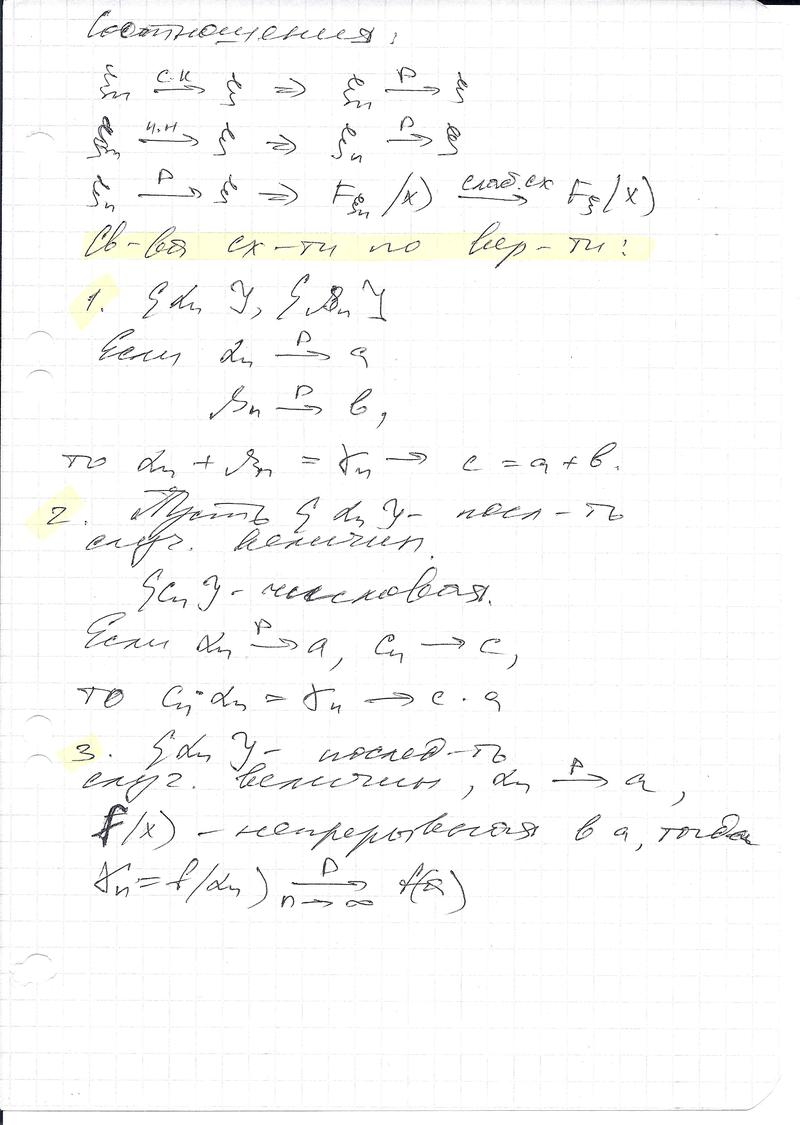 Соотношения:
ξn —с.к→ ξ ⇒ ξn —P→ ξ
ξn —п.н→ ξ ⇒ ξn —P→ ξ
ξn —P→ ξ ⇒ Fξn(x) —слаб.сх→ Fξ(x)
Св-ва сх-ти по вер-ти:
1. {αn}, {βn}
Если αn —P→ a
βn —P→ b,
то αn + βn = γn → c = a + b.
2. Пусть {αn} - посл-ть
случ. величин.
{cn} - числовая.
Если αn —P→ a, cn → c,
то cn·αn = γn → c · a
3. {αn} - послед-ть
случ. величин, αn —P→ a,
f(x) - непрерывная в a, тогда
γn = f(αn) —P→ f(a)
n→∞